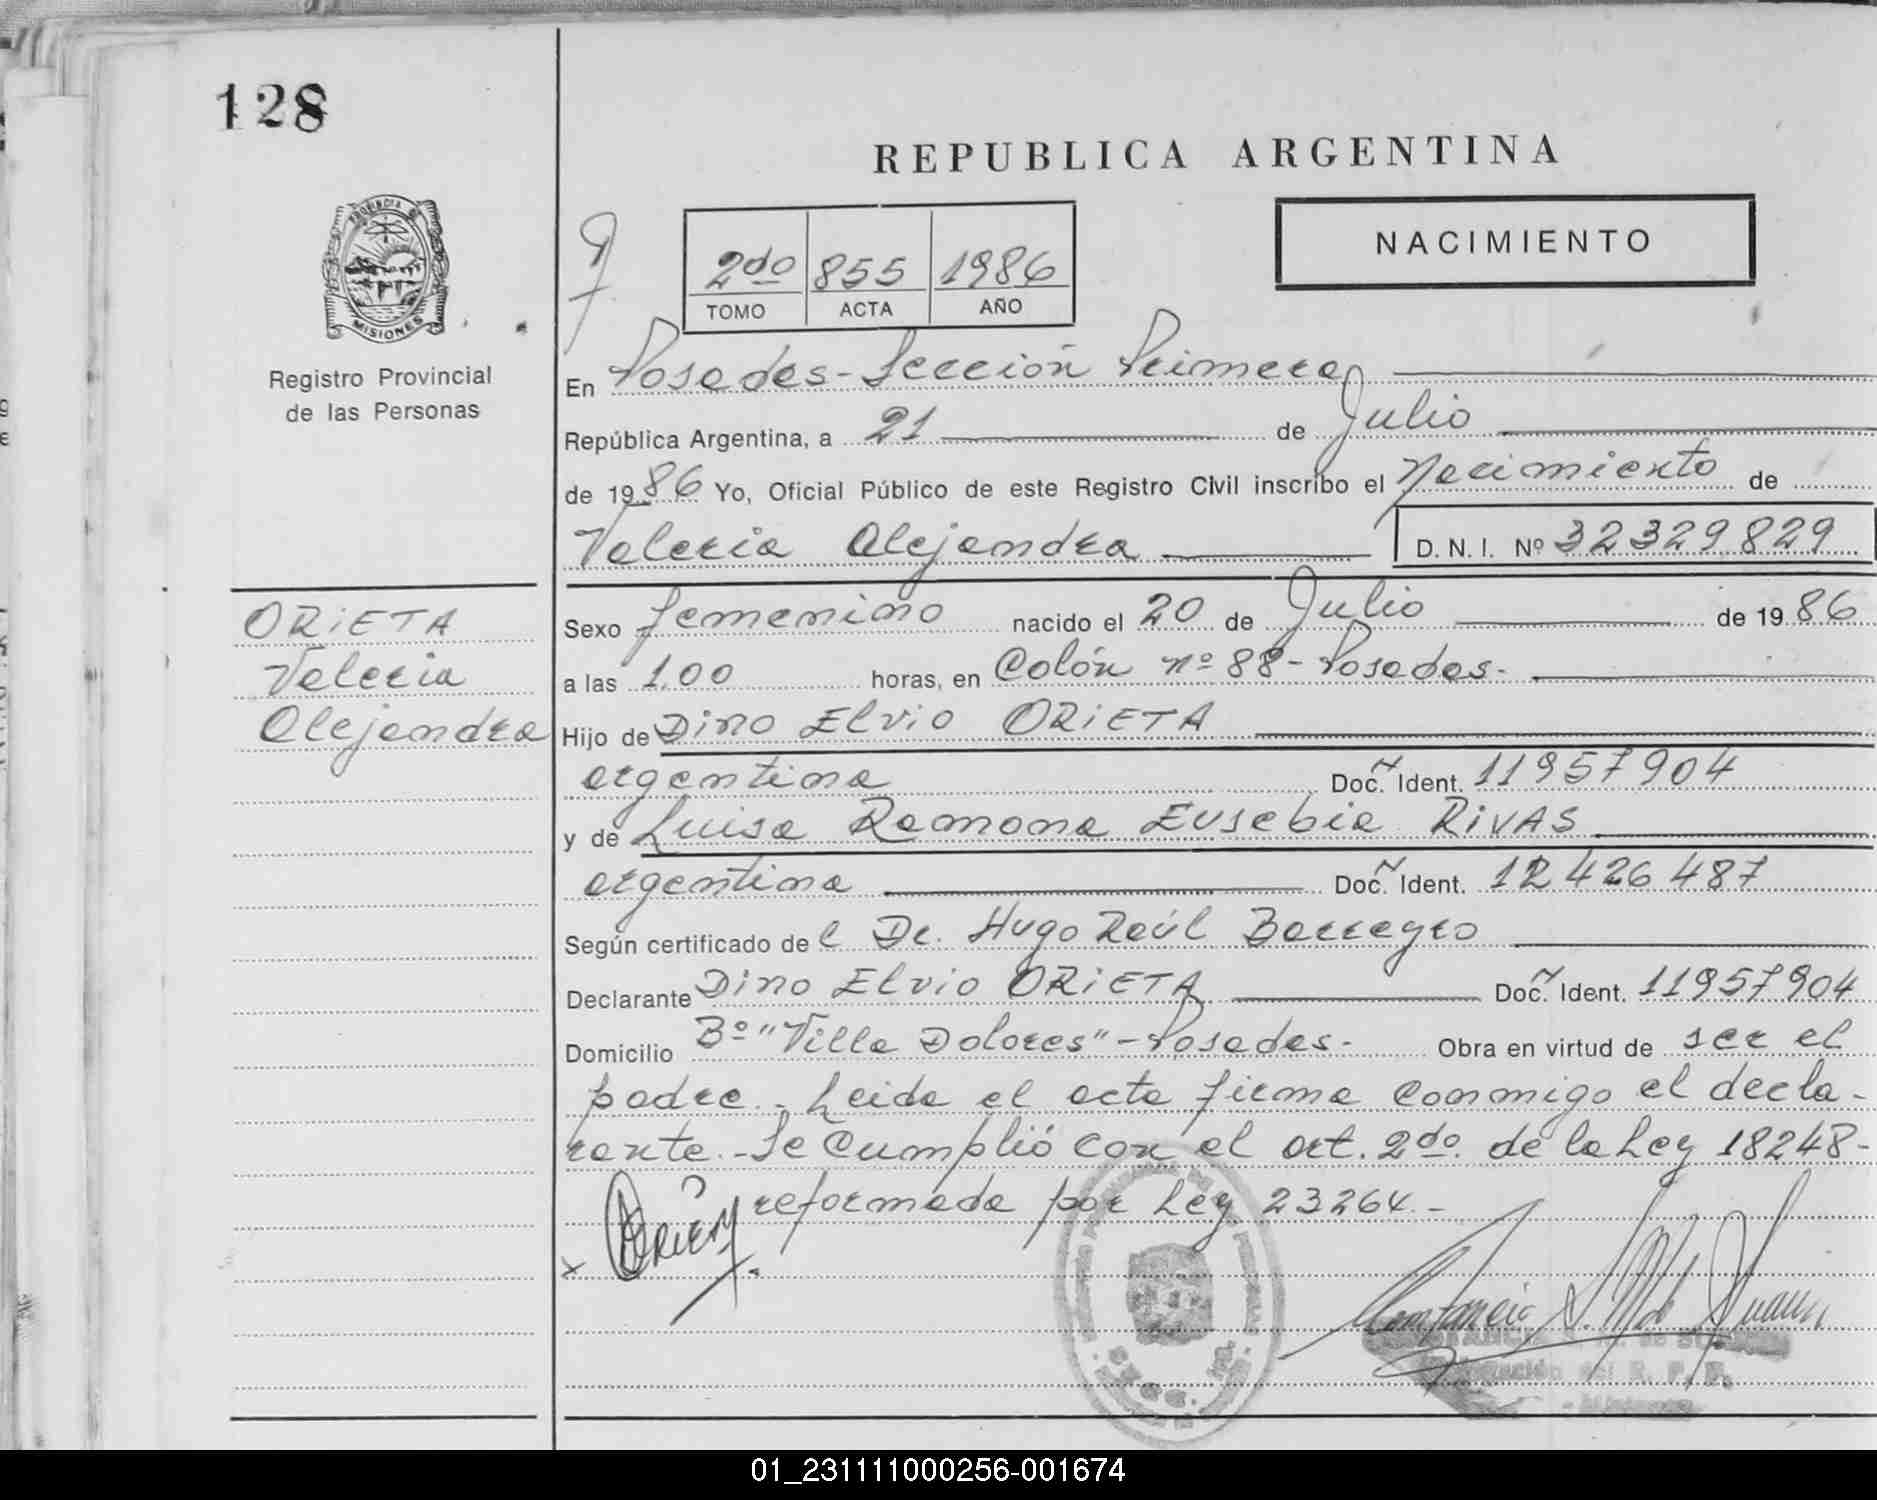 128
REPUBLICA ARGENTINA
NACIMIENTO
2do 855 1986
TOMO ACTA AÑO
PROVINCIA DE
MISIONES
Registro Provincial
de las Personas
En Posadas - Sección Primera
República Argentina, a 21 de Julio
de 1986 Yo, Oficial Público de este Registro Civil inscribo el Nacimiento de
Valeria Alejandra D. N. I. Nº 32329829
ORIETA
Valeria
Alejandra
Sexo femenino nacido el 20 de Julio de 1986
a las 1.00 horas, en Colón nº 88 - Posadas.
Hijo de Dino Elvio ORIETA
argentina Doc. Ident. 11957904
y de Luisa Ramona Eusebia RIVAS
argentina Doc. Ident. 12426487
Según certificado del Dr. Hugo Raúl Barreyro
Declarante Dino Elvio ORIETA Doc. Ident. 11957904
Domicilio Bº "Villa Dolores" - Posadas. Obra en virtud de ser el
padre. - Leida el acta firma conmigo el decla-
rante. - Se cumplió con el art. 2do. de la Ley 18248 -
reformada por Ley 23264. -
01_231111000256-001674